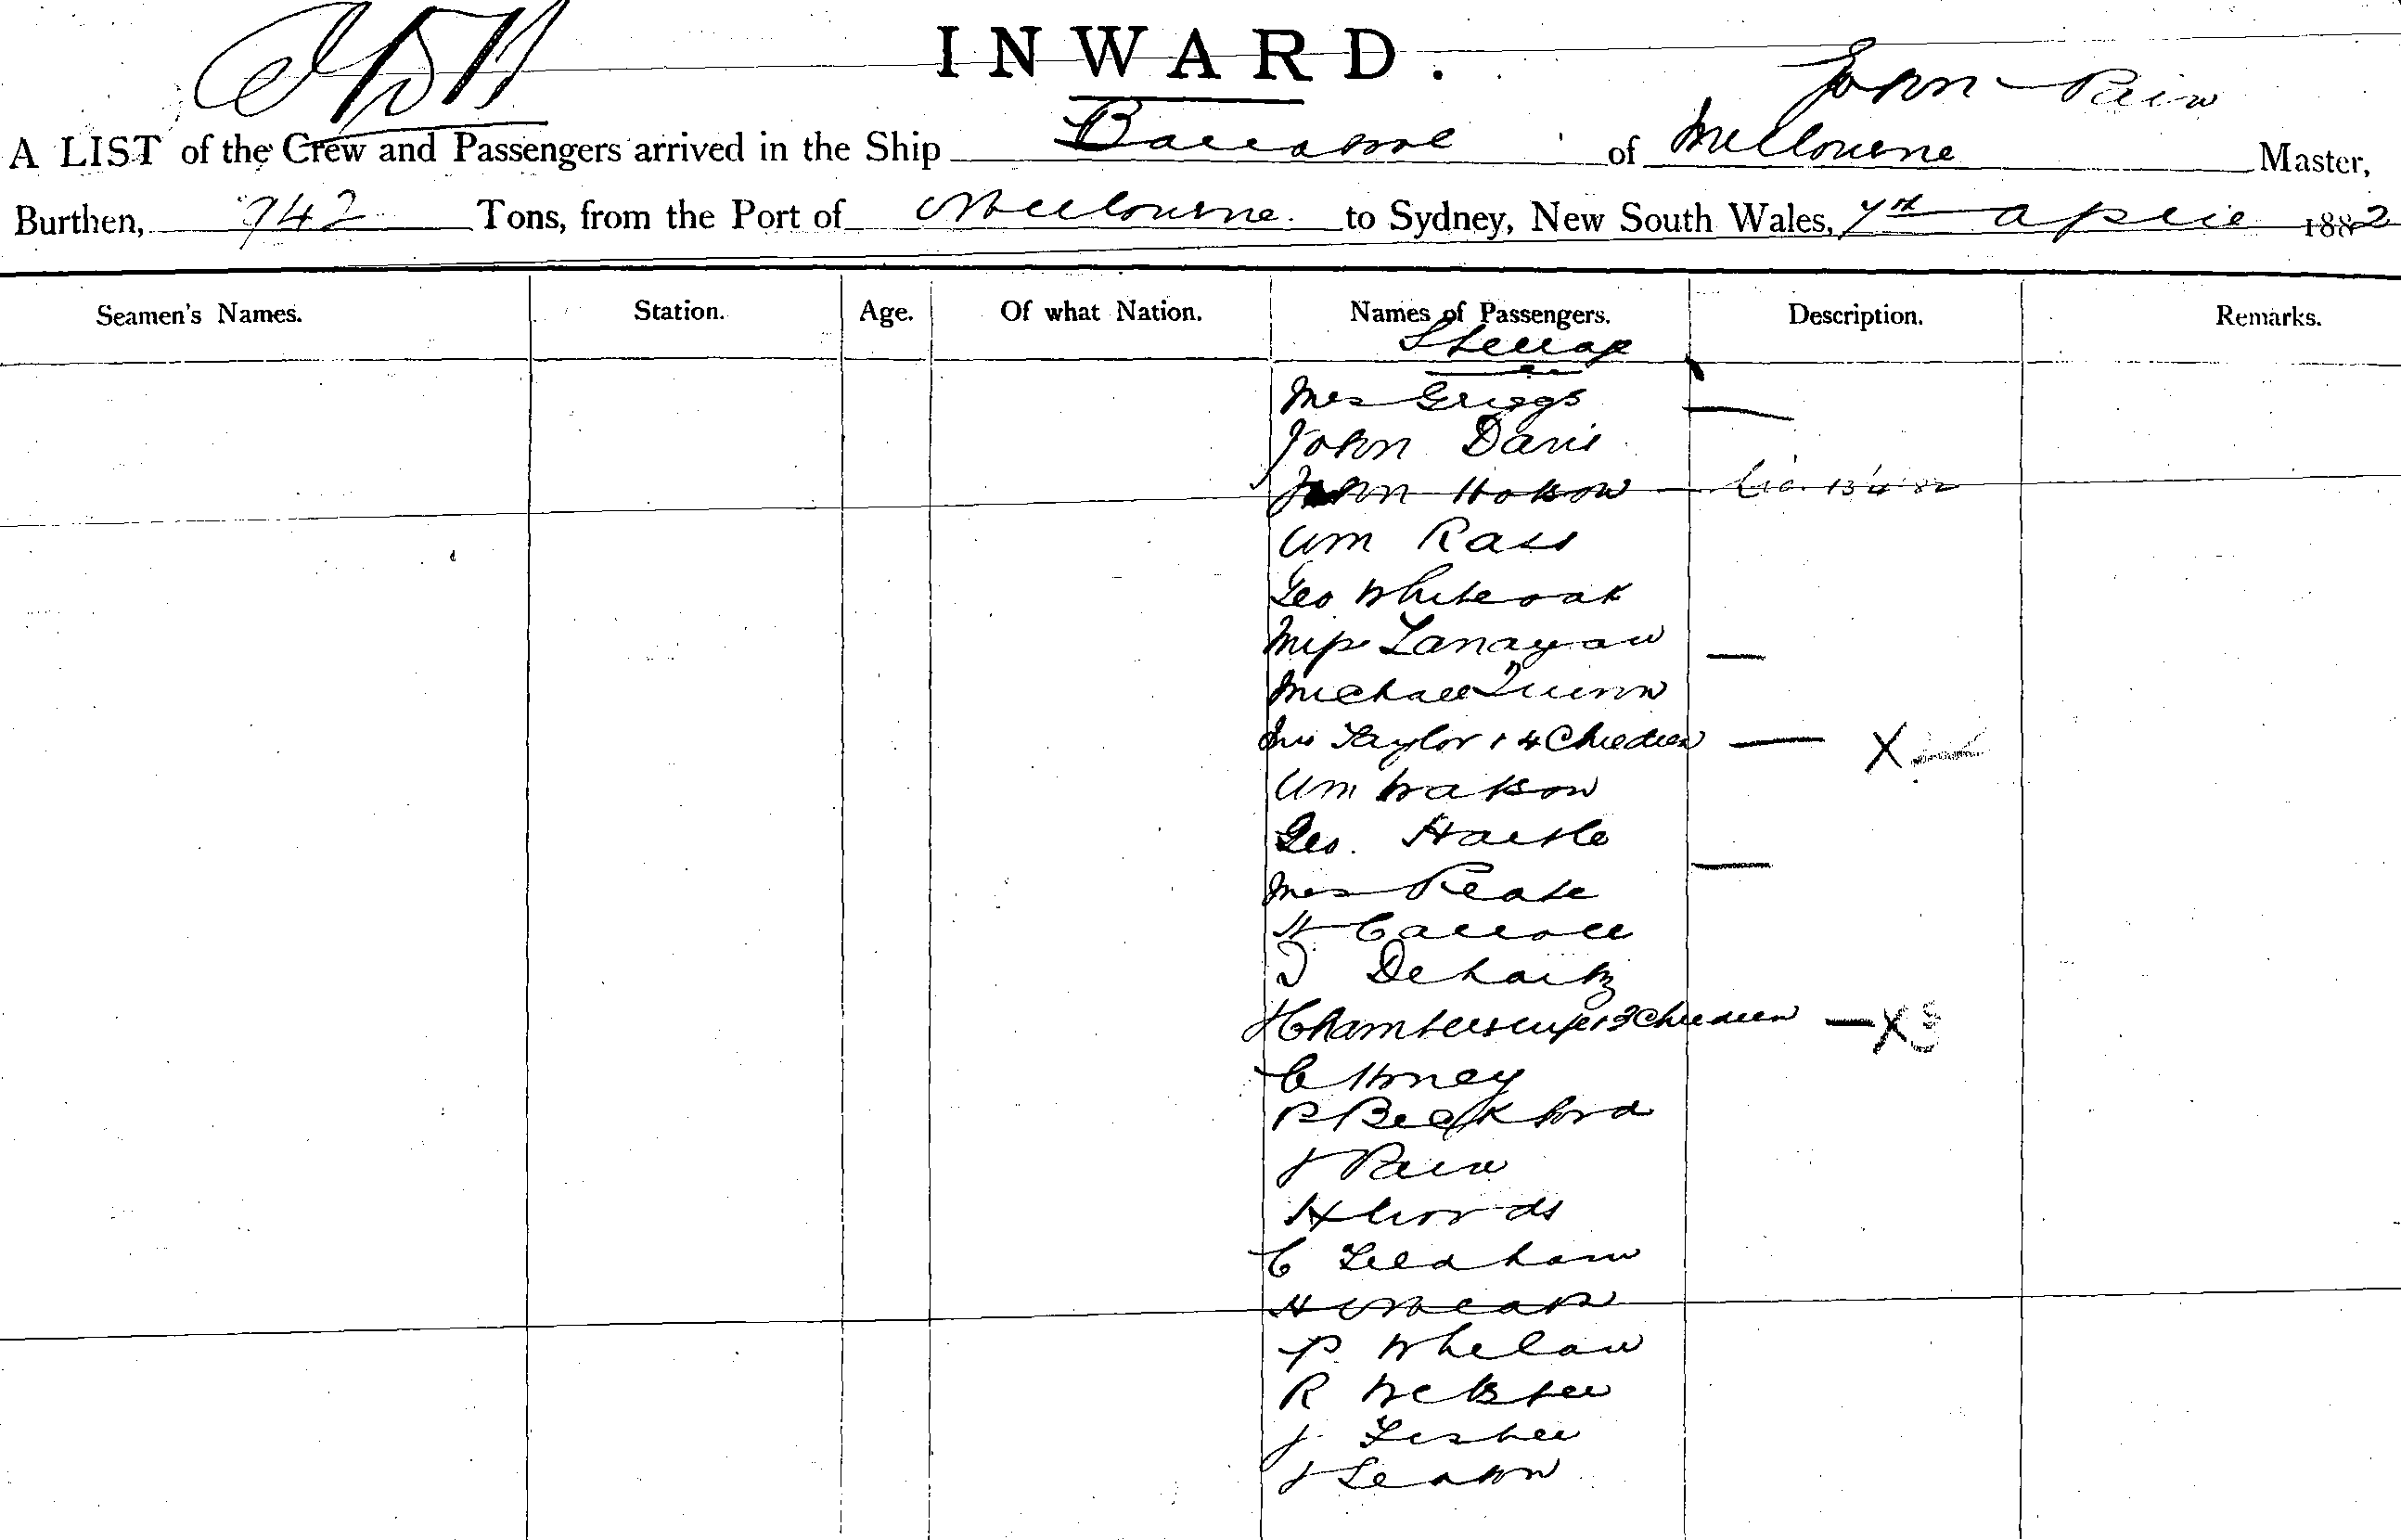 INWARD.
John Pain
A LIST of the Crew and Passengers arrived in the Ship Barrabool of Melbourne Master,
Burthen, 942 Tons, from the Port of Melbourne. to Sydney, New South Wales, 7th April 1882
Seamen's Names. Station. Age. Of what Nation. Names of Passengers. Description. Remarks.
Steerage
Mrs Griggs
John Davis
John Hobson 13/4/82
Wm Rass
Geo Whiteoak
Miss Lanagan
Michael Quinn
Mrs Taylor & 4 Children X
Wm Watson
Geo. Hartle
Mrs Peate
H Carroll
Dehartz
H Chambers wife & 3 Children X
C Honey
P Beckford
J Pain
H Woods
C Leedham
H
P Whelan
R Webster
J. Fisher
J